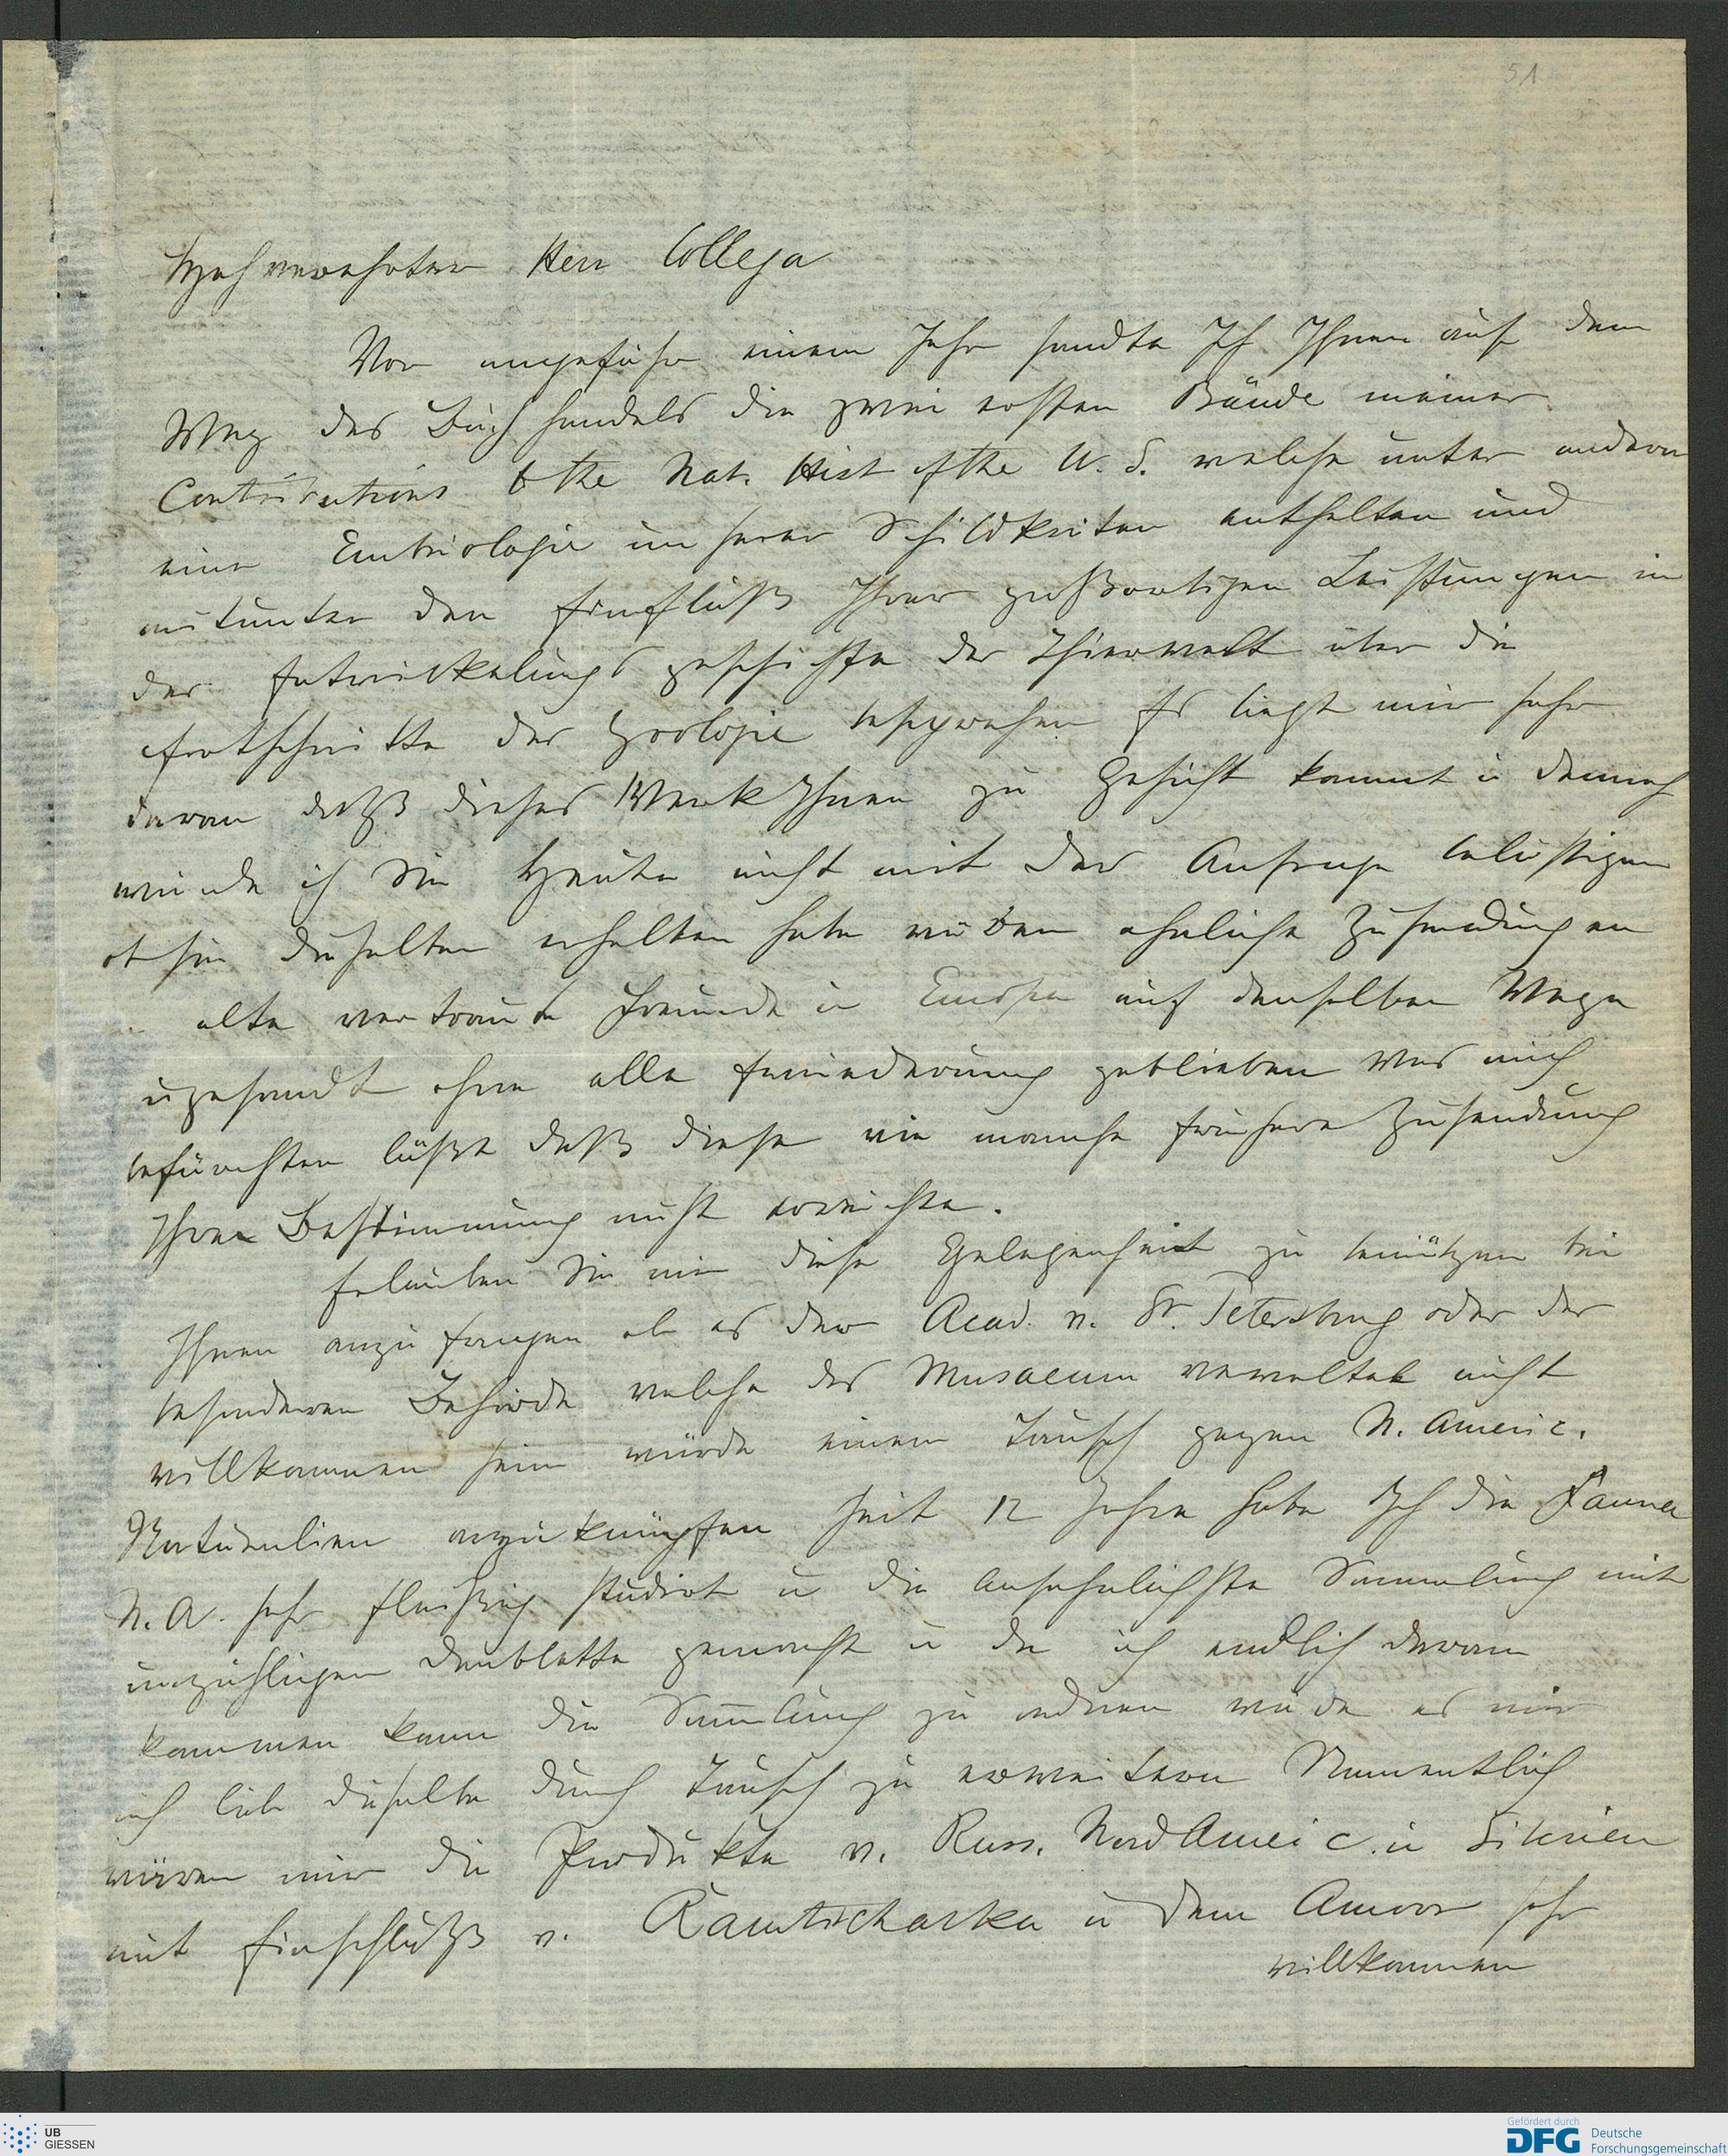 51
Hochverehrter Herr Collega
Vor ungefähr einem Jahr sandte Ich Ihnen auf dem
Weg des Buchhandels die zwei ersten Bände meiner
Contributions to the Nat. Hist of the U. S. welche unter andern
eine Embriologie unserer Schildkröten enthalten und
mitunter den Einfluß Ihrer großartigen Leistungen in
der Entwickelungsgeschichte der Thierwelt über die
Fortschritte der Zoologie besprechen Es liegt mir sehr
daran daß dieses Werk Ihnen zu Gesicht kommt u demnach
würde ich Sie heute nicht mit der Anfrage belästigen
ob Sie dieselben erhalten habe wären ähnliche Zusendungen
alte vertraute Freunde in Europa auf denselben Wege
zugesandt ohne alle Erwiederung geblieben Was mich
befürchten läßt daß diese wie manche frühere Zusendung
Ihre Bestimmung nicht erreichte.
Erlauben Sie mir diese Gelegenheit zu benützen bei
Ihnen anzufragen ob es der Acad. v. St. Petersburg oder der
besonderen Behörde welche das Musaeum verwaltet nicht
willkommen sein würde einen Tausch gegen N. Americ.
Naturalien anzuknüpfen Seit 12 Jahre habe Ich die Fauna
N. A. sehr fleißig studirt u die ansehnlichste Sammlung mit
unzähligen Doublette gemacht u da ich endlich daran
kommen kann die Sammlung zu ordnen würde es mir
lieb dieselbe durch Tausch zu erweitern Namentlich
wären mir die Produkte v. Russ. Nord Americ. u Siberien
mit Einschluß v. Kamtschatka u dem Amoor sehr
willkommen
UB
GIESSEN
Gefördert durch
DFG Deutsche
Forschungsgemeinschaft